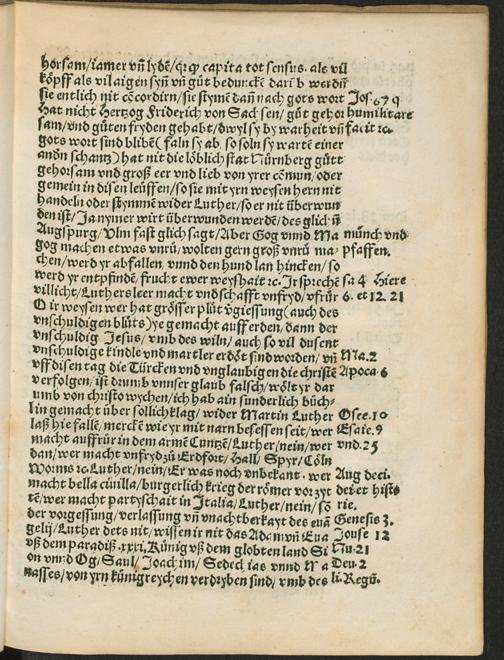 horsam/iamer vñ lydē/qꝛqꝫ capita tot sensus. als vil
köpff als vil aigen syn̄ vn̄ güt beduncke darī b werdn̄
sie entlich nit cōcordirn/sie stymē dan̄ nach gots wort Jos.67 q
hat nicht Hertzog Friderich von Sachsen/güt gehor humiliare
sam/vnd güten fryden gehabt/dwyl sy by warheit vn̄ facit ꝛc.
gots wort sind blibē(faln sy ab, so soln sy warte einer
andn̄ schantz)hat nit die löblich stat Nürnberg gütt
gehorsam vnd groß eer vnd lieb von yrer cōmun/oder
gemein in disen leüffen/so sie mit yrn weysen hern nit
handeln oder stymmē wider Luther/so er nit überwun
den ist/Ja nymer wirt überwunden werdē/des glich ñ
Augspurg/Vlm fast glich sagt/Aber Gog vnnd Ma münch vnd
gog machen etwas vnrü/wolten gern groß vnrü ma- pfaffen.
chen/werd yr abfallen, vnnd den hund lan hincken/so
werd yr entpfindē, frucht ewer weyshait ꝛc. Ir sprechē sa 4 Hiere
villicht/Luthers leer macht vnd schafft vnfryd/vfrür 6. et 12. 21
O ir weysen wer hat grösser plüt vgiessung(auch des
vnschuldigen blüts)ye gemacht auff erden/dann der
vnschuldig Jesus/vmb des wiln/auch so vil dusent
vnschuldige kindle vnd martler erdöt sind worden/vn̄ Ma.2
vff disen tag die Türcken vnd vnglaubigen die christē Apoca 6
verfolgen/ist drumb vnnser glaub falsch/wölt yr dar
umb von christo wychen/ich hab ain sunderlich büch-
lin gemacht über sollich klag/wider Martin Luther Osee.10
laß hie fallē/merckē wie yr mit narn besessen seit/wer Esaie.9
macht auffrür in dem armē Cuntzē/Luther/nein/wer vnd.25
dan/wer macht vnfryd zü Erdfort/Hall/Spyr/Cöln
Worms ꝛc. Luther/nein/Er was noch vnbekant. wer Aug deci.
macht bella ciuilia/burgerlich krieg der römer vor zyt dei et histo
tē/wer macht partyschait in Italia/Luther/nein/sō rie.
der vorgessung/verlassung vn̄ vnachtberkayt des euā Genesis 3.
gelij/Luther dets nit/wissen ir nit das Adam vn̄ Eua Josue 12
vß dem paradiß.xxxi. Künig vß dem globten land Si Nu.21
on vnnd Og/Saul/Joachim/Sedechias vnnd Ma Deu.2
nasses/von yrn künigreychen verdryben sind/vmb des li.Regū.